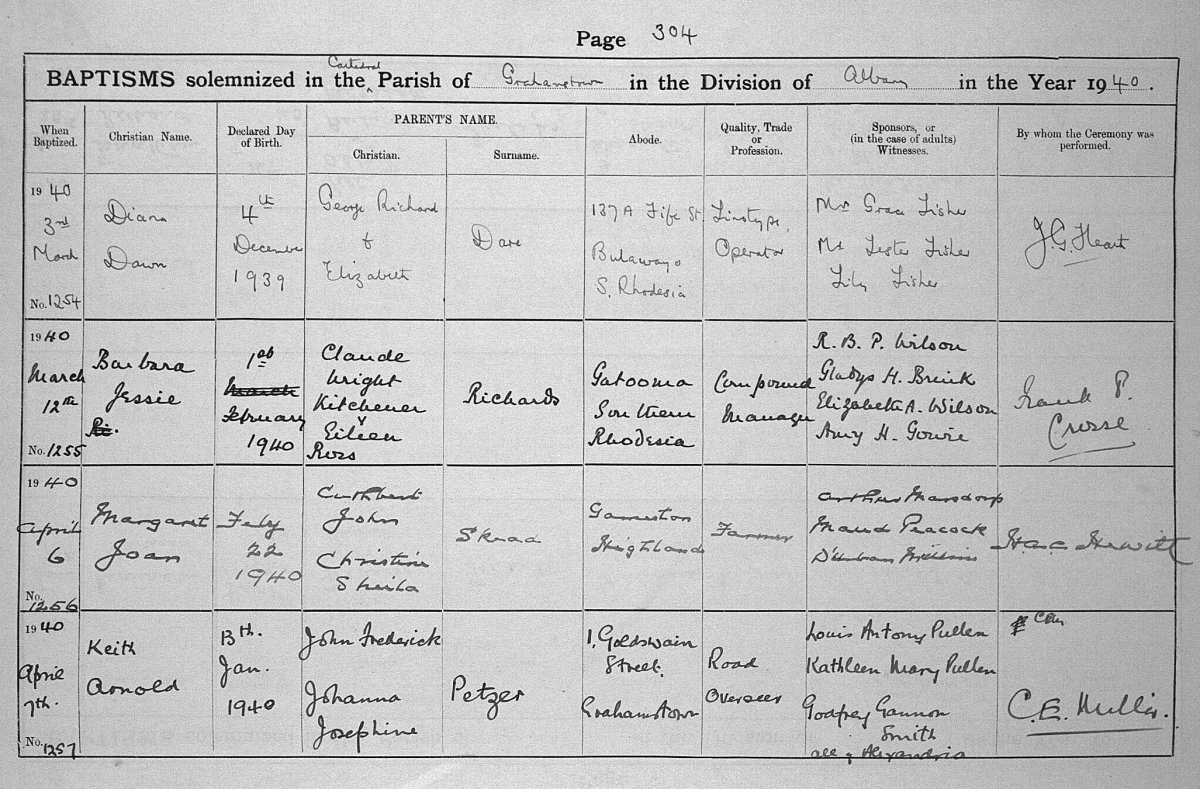 Page 304
BAPTISMS solemnized in the Cathedral Parish of Grahamstown in the Division of Albany in the Year 1940.
When Baptized.
Christian Name.
Declared Day of Birth.
PARENT'S NAME.
Christian.
Surname.
Abode.
Quality, Trade or Profession.
Sponsors, or (in the case of adults) Witnesses.
By whom the Ceremony was performed.
1940
3rd
March
No. 1254
Diana
Dawn
4th
December
1939
George Richard
&
Elizabeth
Dare
137A Fife St.
Bulawayo
S. Rhodesia
Linotype
Operator
Mrs Grace Fisher
Mr Lester Fisher
Lily Fisher
J.G. Heart
1940
March
12th
No. 1255
Barbara
Jessie
1st
March
February
1940
Claude
Wright
Kitchener
&
Eileen
Ross
Richards
Gatooma
Southern
Rhodesia
Compound
Manager
R. B. P. Wilson
Gladys H. Brink
Elizabeth A. Wilson
Amy H. Gowie
Frank P.
Crosse
1940
April
6
No. 1256
Margaret
Joan
Feby
22
1940
Cuthbert
John
Christine
Sheila
Skead
Highlands
Farmer
Arthur
Maud Peacock
Hewitt
1940
April
7th.
No. 1257
Keith
Arnold
13th.
Jan.
1940
John Frederick
Johanna
Josephine
Petzer
1, Goldswain
Street.
Grahamstown
Road
Overseer
Louis Antony Pullen
Kathleen Mary Pullen
Godfrey Gannon
Smith
all of Alexandria